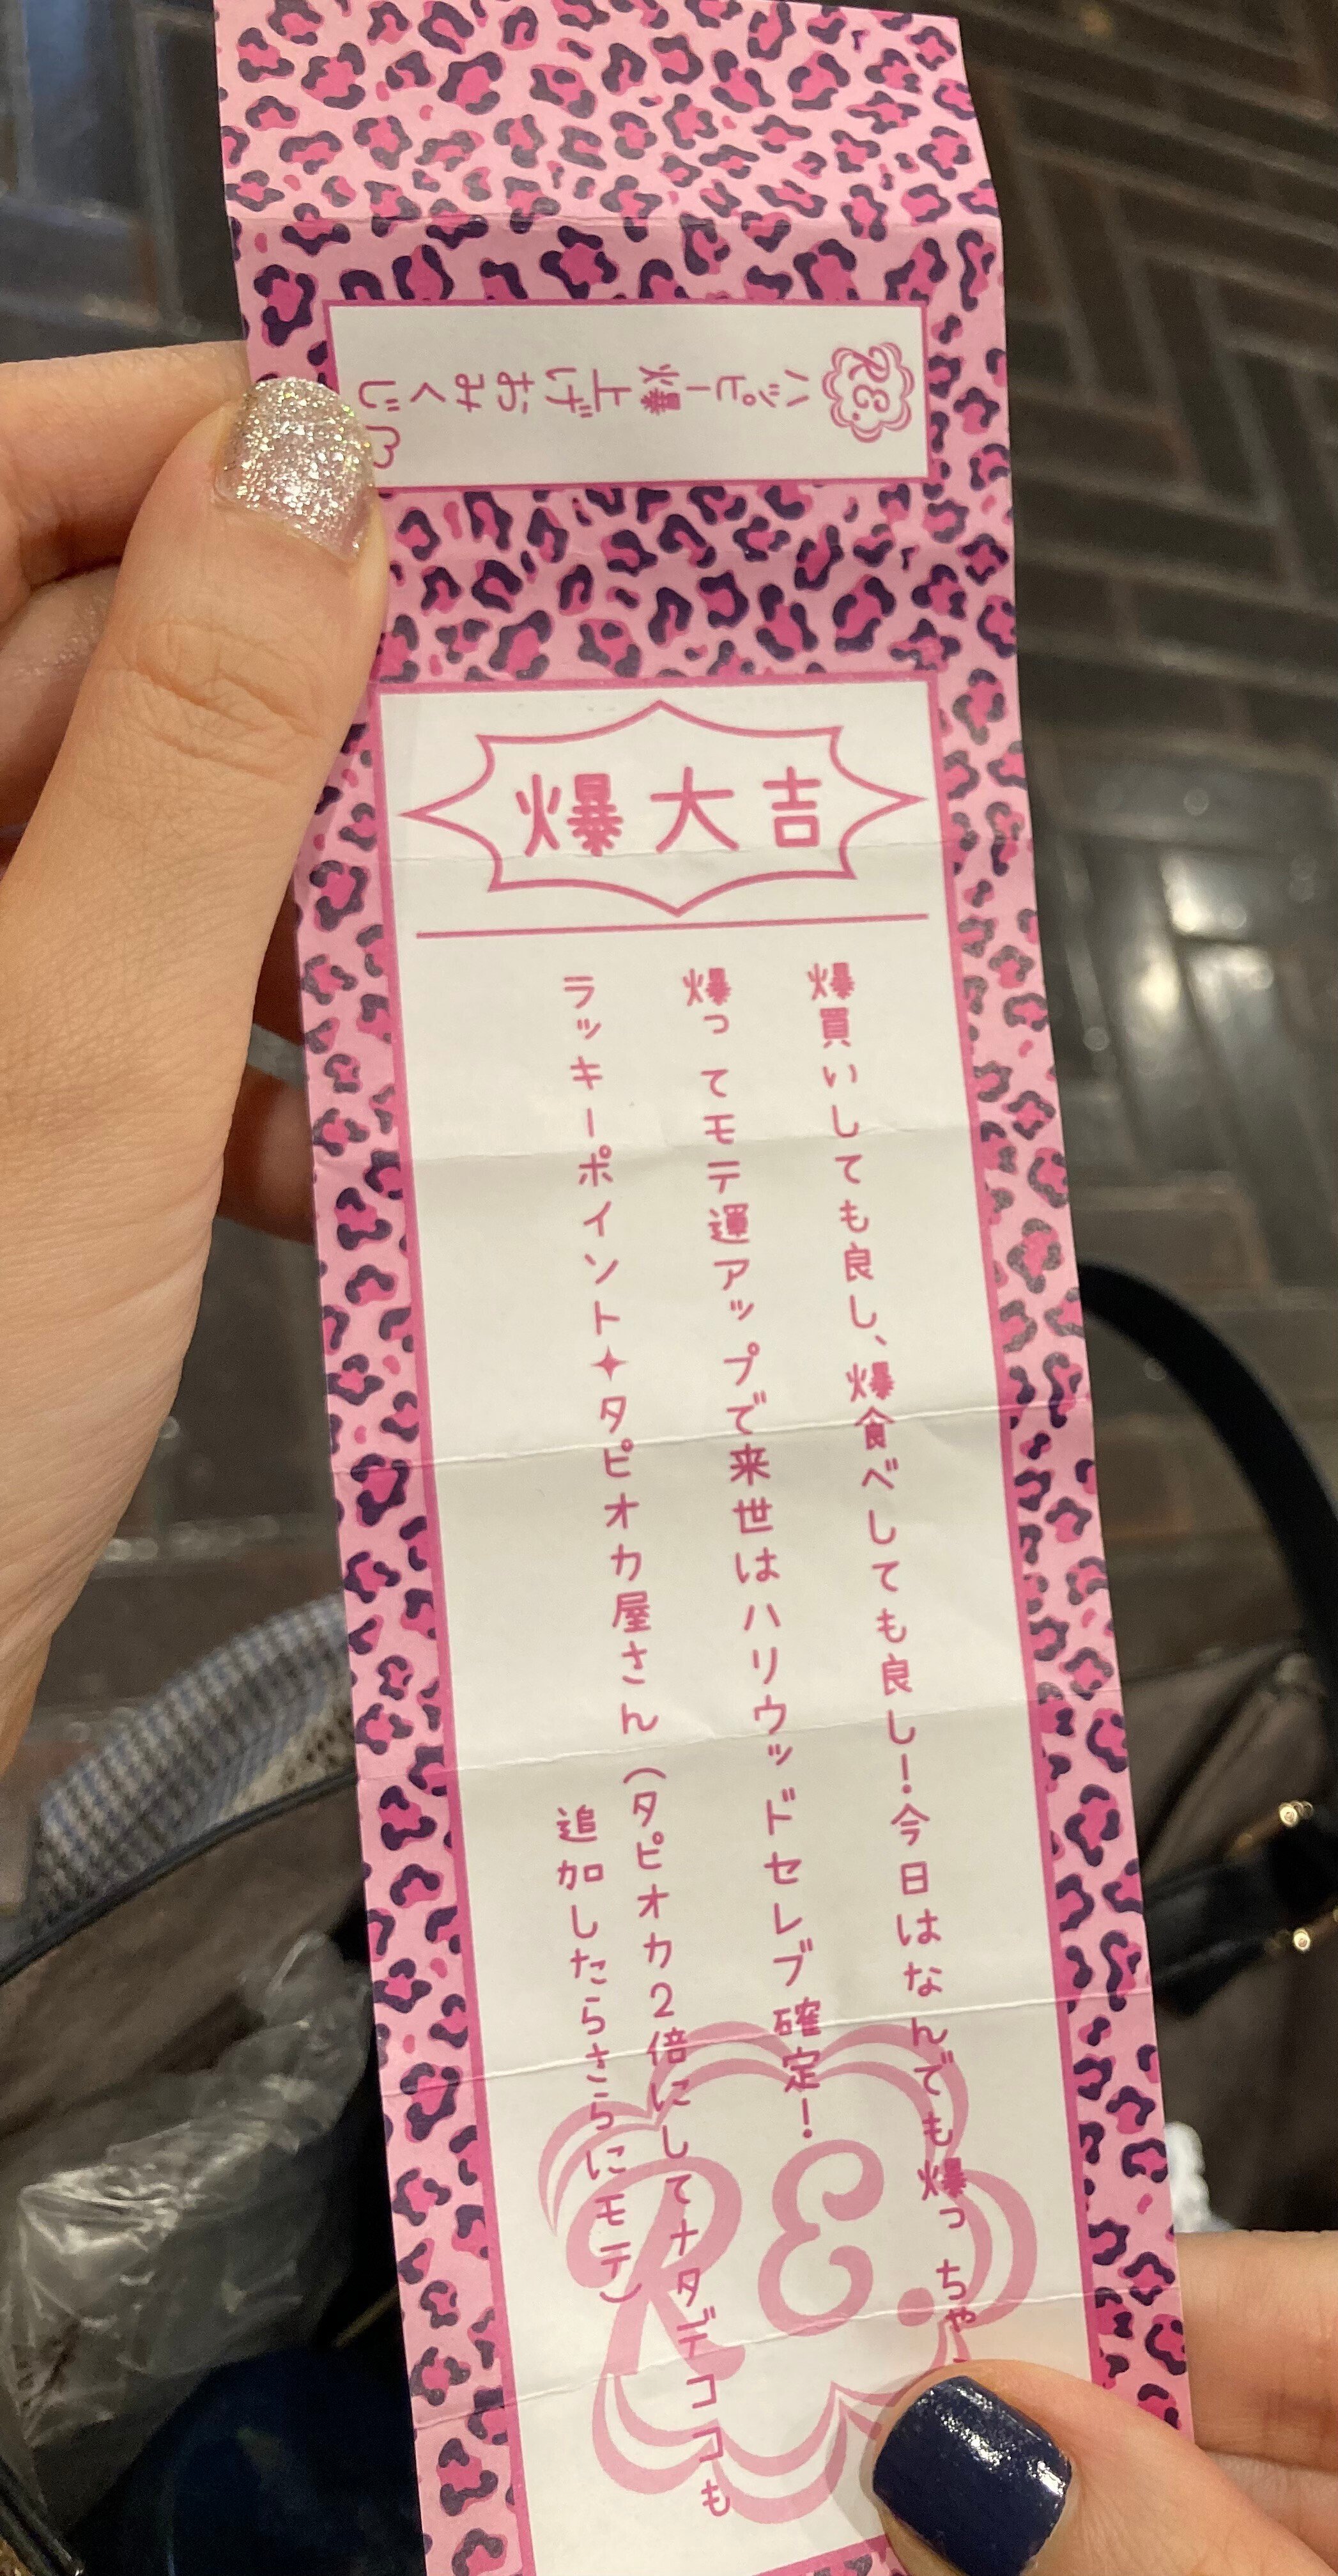 RE.
ハッピー爆上げおみくじ♡
爆大吉
爆買いしても良し、爆食べしても良し!今日はなんでも爆っちゃ
爆ってモテ運アップで来世はハリウッドセレブ確定!
ラッキーポイント✦タピオカ屋さん(タピオカ2倍にしてナタデココも
追加したらさらにモテ)
RE.